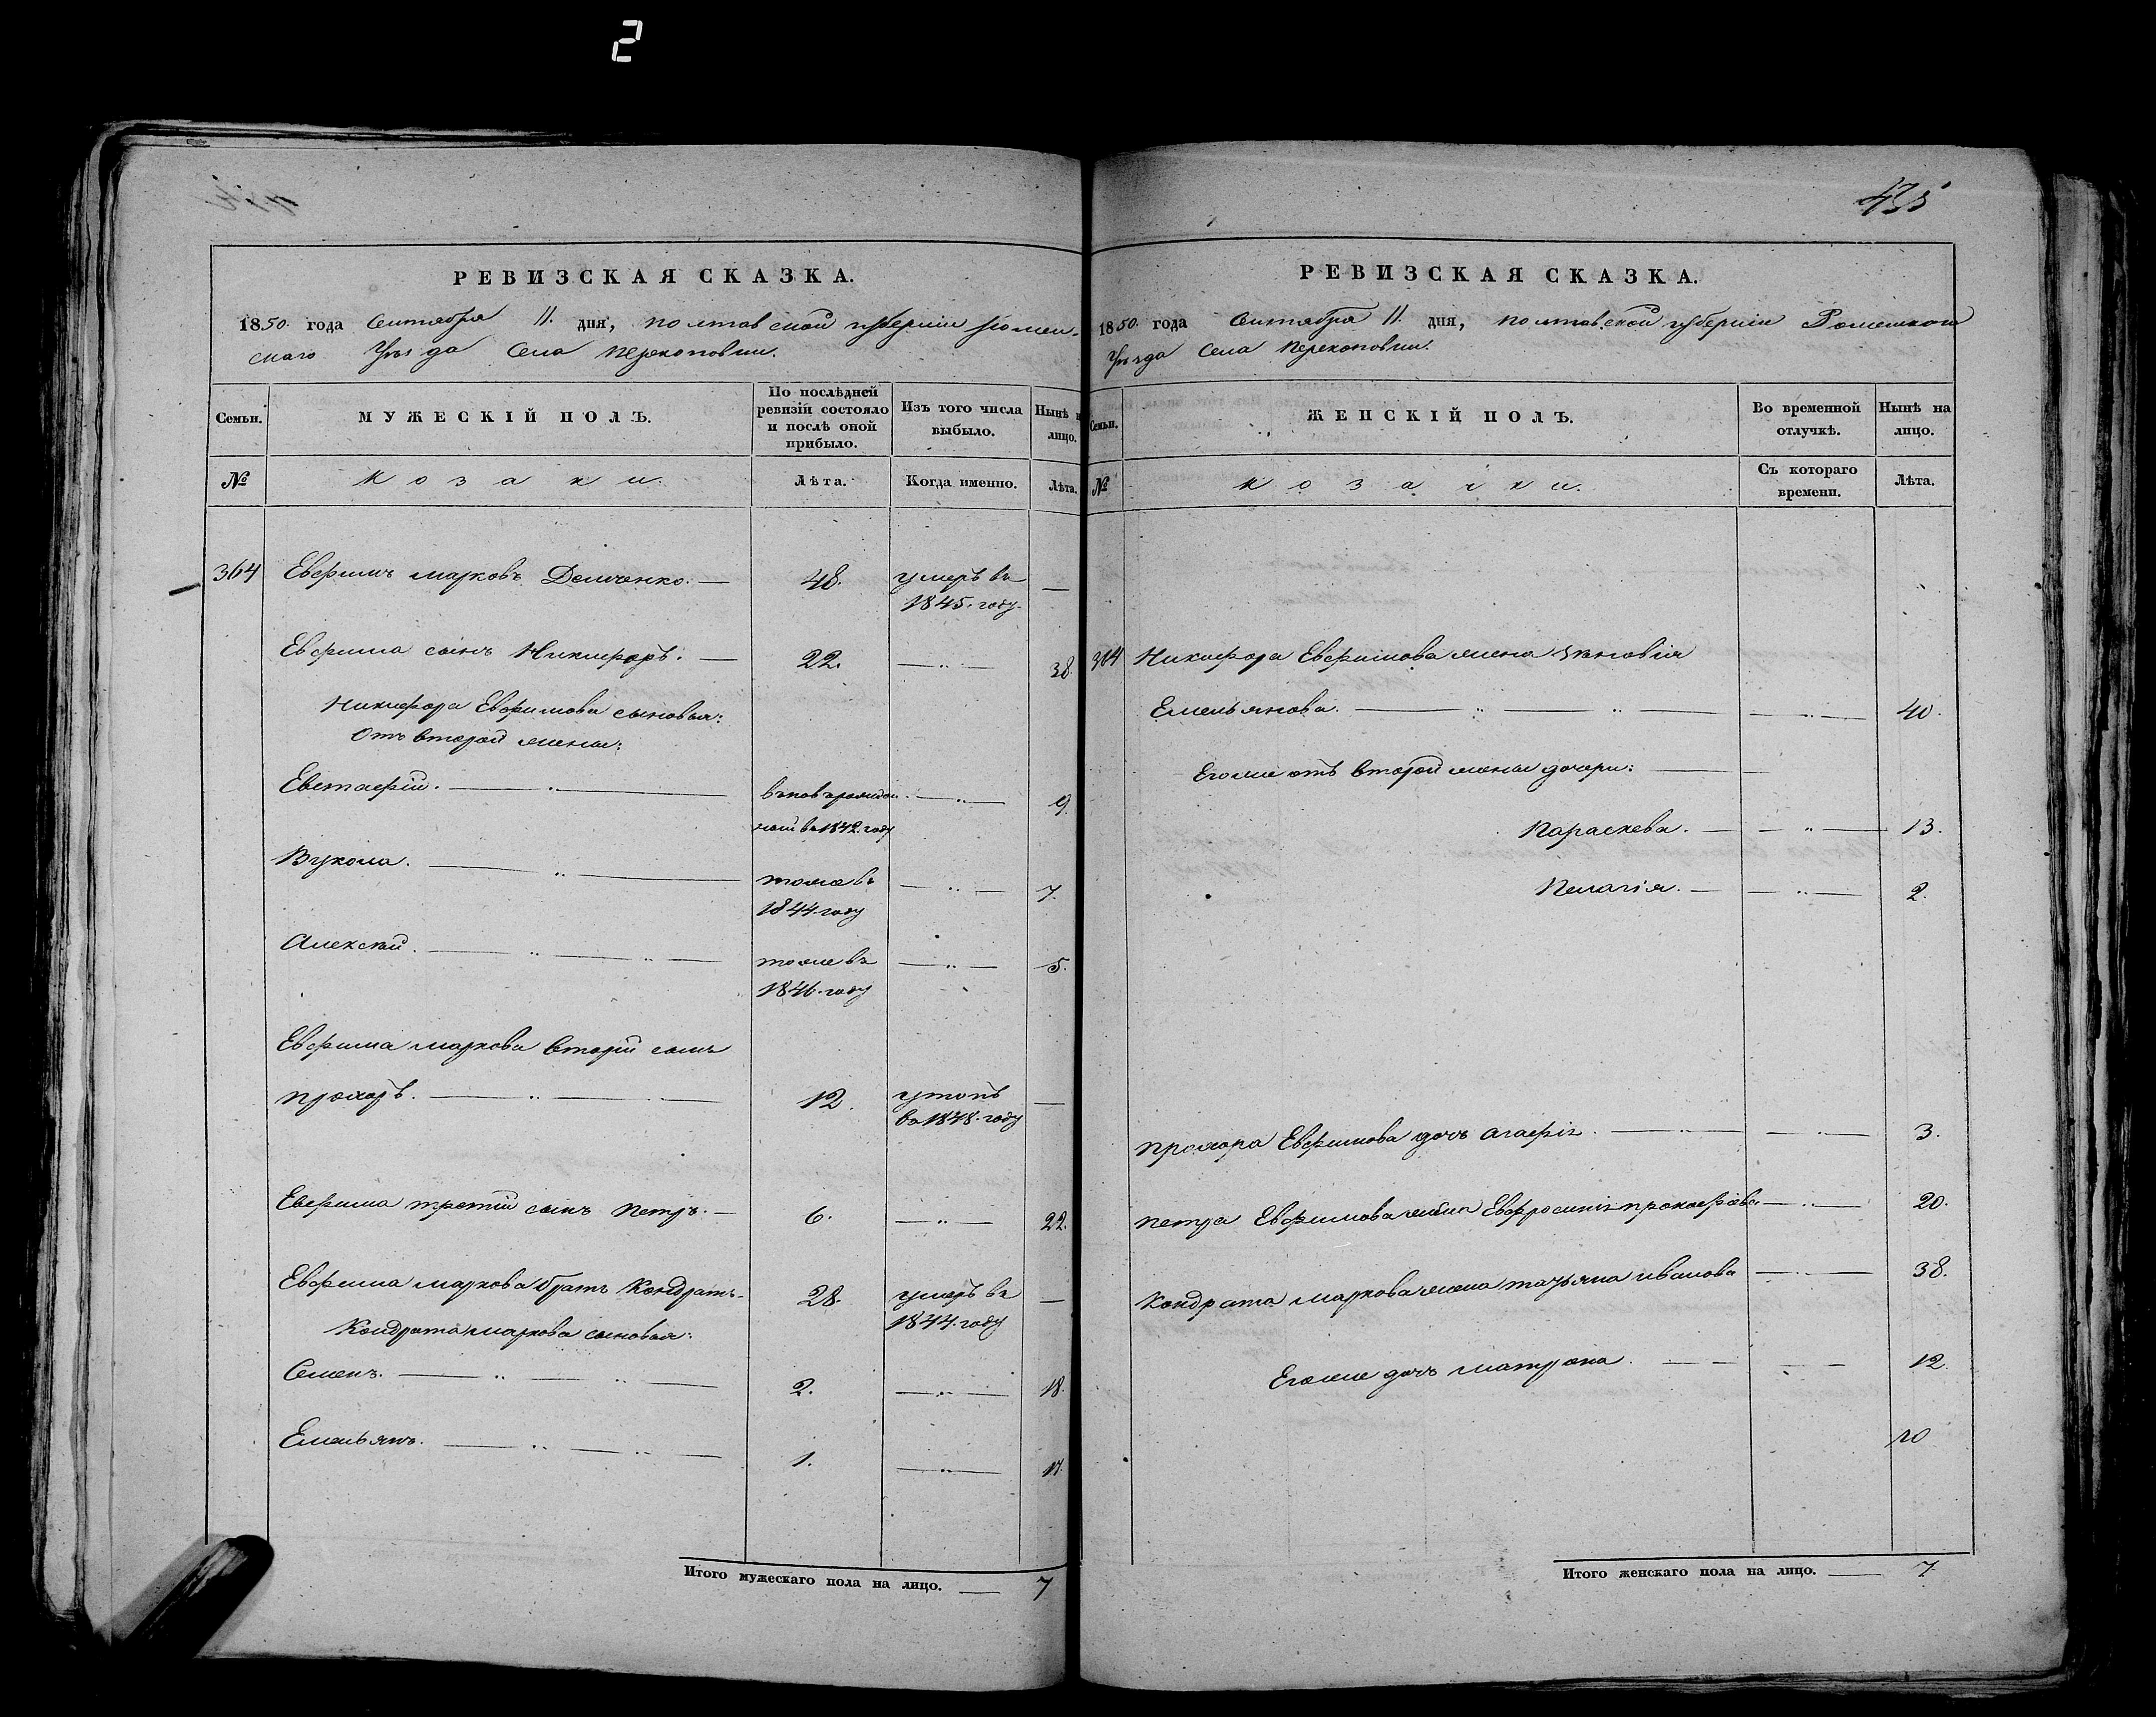 2
435
РЕВИЗСКАЯ СКАЗКА.
1850. года Сентября 11. дня, полтавской губернии Ромен-
скаго Уѣзда Села Перекоповки.
Семьи. МУЖЕСКІЙ ПОЛЪ. По послѣдней ревизіи состояло и послѣ оной прибыло. Изъ того числа выбыло. Нынѣ н лицо.
№ козаки. Лѣта. Когда именно. Лѣта.
364 Евфимъ марковъ Демченко. — 48. умеръ въ —
1845. году.
Евфима сынъ Никифоръ. — 22. — 38.
Никифора Евфимова сыновья:
Отъ второй жены:
Евстафій. въ 1842. году 9.
Вукола. тоже въ 7.
1844. году
Алексѣй. тоже въ 5.
1846. году
Евфима маркова вторій сынъ
прохоръ. 12. утопъ —
въ 1848. году
Евфима третій сынъ петръ. — 6. — 22.
Евфима маркова братъ Кондратъ. 28. умеръ въ —
1844. году
Кондрата маркова сыновья:
Семенъ. 2. — 18.
Емельянъ. 1. — 17.
Итого мужескаго пола на лицо. — 7
РЕВИЗСКАЯ СКАЗКА.
1850. года Сентября 11. дня, полтавской губерніи Роменскаго
Уѣзда Села Перекоповки.
Семьи. ЖЕНСКІЙ ПОЛЪ. Во временной отлучкѣ. Нынѣ на лицо.
№ козачки. Съ котораго времени. Лѣта.
364 Никифора Евфимова жена Зѣновія
Емельянова. — 40.
Егоже отъ второй жены дочери: —
Параскева. — 13.
Пелагія. — 2.
прохора Евфимова дочь агафія — 3.
петра Евфимова жена Евфросинія прокофіева — 20.
Кондрата маркова жена татьяна иванова — 38.
Егоже дочь матрона. — 12.
Итого женскаго пола на лицо. — 7